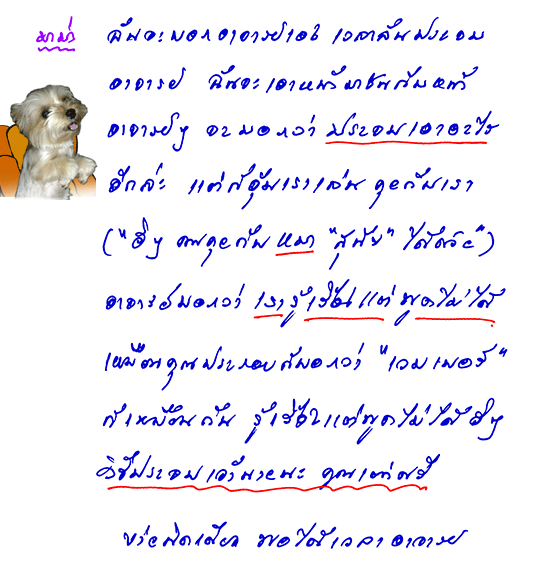 มาม่า ฉันจะบอกอาจารย์เอง เวลาฉันประจบ
อาจารย์ ฉันจะเอาหน้ามาชนกับหน้า
อาจารย์ๆ จะบอกว่า ประจบเอาอะไร
อีกล่ะ แต่ก็อุ้มเราเล่น คุยกับเรา
("ฮิๆ คนคุยกับ หมา "สุนัข" ได้ด้วย")
อาจารย์บอกว่า เรารู้เรื่อง แต่ พูดไม่ได้
เหมือนคุณประกอบก็บอกว่า "เจมเมอร์"
ก็เหมือนกัน รู้เรื่องแต่พูดไม่ได้ฮิๆ
วิธีประจบเจ้านายนะ คุณเต่า
พอได้เวลา อาจารย์